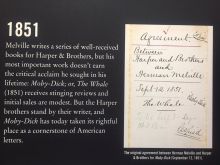 1851
Melville writes a series of well-received
books for Harper & Brothers, but his
most important work doesn't earn
the critical acclaim he sought in his
lifetime: Moby-Dick; or, The Whale
(1851) receives stinging reviews and
initial sales are modest. But the Harper
brothers stand by their author, and
Moby-Dick has today taken its rightful
place as a cornerstone of American
letters.
Agreement
Between
Harper and Brothers
and
Herman Melville
Sept 12. 1851.
The Whale
The original agreement between Herman Melville and Harper
& Brothers for Moby-Dick (September 12, 1851).